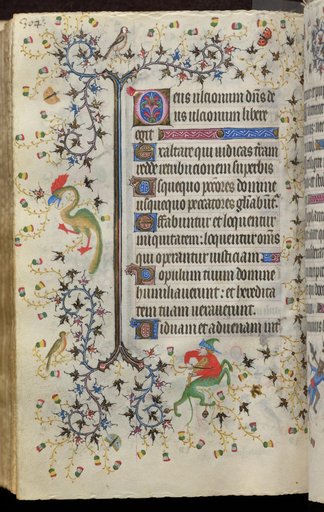 Deus ulcionum dn̄s de
us ulcionum libere
egit
Exaltare qui iudicas terram
redde retribucionem superbis
Usquequo peccatores domine
usquequo peccatores gliabūt̄
Effabuntur et loquentur
iniquitatem: loquentur om̄s
qui operantur iniusticiam
Populum tuum domine
humiliauerunt: et heredita
tem tuam uexauerunt.
Uiduam et aduenam int̄